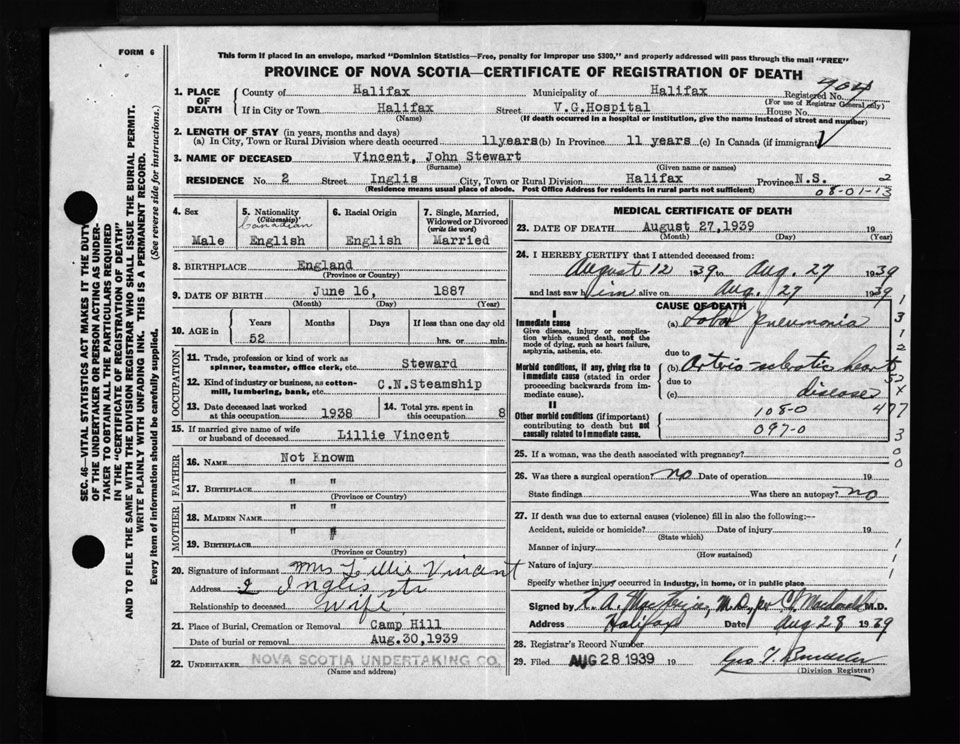 FORM 6
This form if placed in an envelope, marked "Dominion Statistics—Free, penalty for improper use $300," and properly addressed will pass through the mail "FREE"
PROVINCE OF NOVA SCOTIA—CERTIFICATE OF REGISTRATION OF DEATH
704
1. PLACE OF DEATH
County of Halifax Municipality of Halifax Registered No.
(For use of Registrar General only)
If in City or Town Halifax Street V.G.Hospital House No.
(Name) (If death occurred in a hospital or institution, give the name instead of street and number)
2. LENGTH OF STAY (in years, months and days)
(a) In City, Town or Rural Division where death occurred 11years (b) In Province 11 years (c) In Canada (if immigrant)
3. NAME OF DECEASED Vincent, John Stewart
(Surname) (Given name or names)
RESIDENCE No. 2 Street Inglis City, Town or Rural Division Halifax Province N.S. 2
(Residence means usual place of abode. Post Office Address for residents in rural parts not sufficient) 08-01-13
4. Sex Male
5. Nationality (Citizenship) Canadian English
6. Racial Origin English
7. Single, Married, Widowed or Divorced (write the word) Married
8. BIRTHPLACE England
(Province or Country)
9. DATE OF BIRTH June 16, 1887
(Month) (Day) (Year)
10. AGE in Years Months Days If less than one day old
52 hrs. or min.
OCCUPATION
11. Trade, profession or kind of work as spinner, teamster, office clerk, etc. Steward
12. Kind of industry or business, as cotton-mill, lumbering, bank, etc. C.N.Steamship
13. Date deceased last worked at this occupation 1938
14. Total yrs. spent in this occupation 8
15. If married give name of wife or husband of deceased Lillie Vincent
FATHER
16. NAME Not Knowm
17. BIRTHPLACE " "
(Province or Country)
MOTHER
18. MAIDEN NAME " "
19. BIRTHPLACE " "
(Province or Country)
20. Signature of informant Mrs Lillie Vincent
Address 2 Inglis St
Relationship to deceased Wife
21. Place of Burial, Cremation or Removal Camp Hill
Date of burial or removal Aug.30,1939
22. UNDERTAKER NOVA SCOTIA UNDERTAKING CO.
(Name and address)
MEDICAL CERTIFICATE OF DEATH
23. DATE OF DEATH August 27,1939 19
(Month) (Day) (Year)
24. I HEREBY CERTIFY that I attended deceased from:
August 12 1939 to Aug. 27 1939
and last saw him alive on Aug. 27 1939
CAUSE OF DEATH
I
Immediate cause
Give disease, injury or complication which caused death, not the mode of dying, such as heart failure, asphyxia, asthenia, etc.
(a) Lobar Pneumonia
due to
Morbid conditions, if any, giving rise to immediate cause (stated in order proceeding backwards from immediate cause).
(b) Arterio sclerotic heart
due to
(c) disease
II
Other morbid conditions (important) contributing to death but not causally related to immediate cause.
108-0
097-0
477
25. If a woman, was the death associated with pregnancy?
26. Was there a surgical operation? no Date of operation 19
State findings Was there an autopsy? no
27. If death was due to external causes (violence) fill in also the following:—
Accident, suicide or homicide? Date of injury 19
(State which)
Manner of injury
(How sustained)
Nature of injury
Specify whether injury occurred in industry, in home, or in public place
Signed by M.D.
Address Halifax Date Aug 28 1939
28. Registrar's Record Number
29. Filed AUG 28 1939 19
(Division Registrar)
SEC. 46—VITAL STATISTICS ACT MAKES IT THE DUTY
OF THE UNDERTAKER OR PERSON ACTING AS UNDER-
TAKER TO OBTAIN ALL THE PARTICULARS REQUIRED
IN THE "CERTIFICATE OF REGISTRATION OF DEATH"
AND TO FILE THE SAME WITH THE DIVISION REGISTRAR WHO SHALL ISSUE THE BURIAL PERMIT.
WRITE PLAINLY WITH UNFADING INK. THIS IS A PERMANENT RECORD.
Every item of information should be carefully supplied. (See reverse side for instructions.)